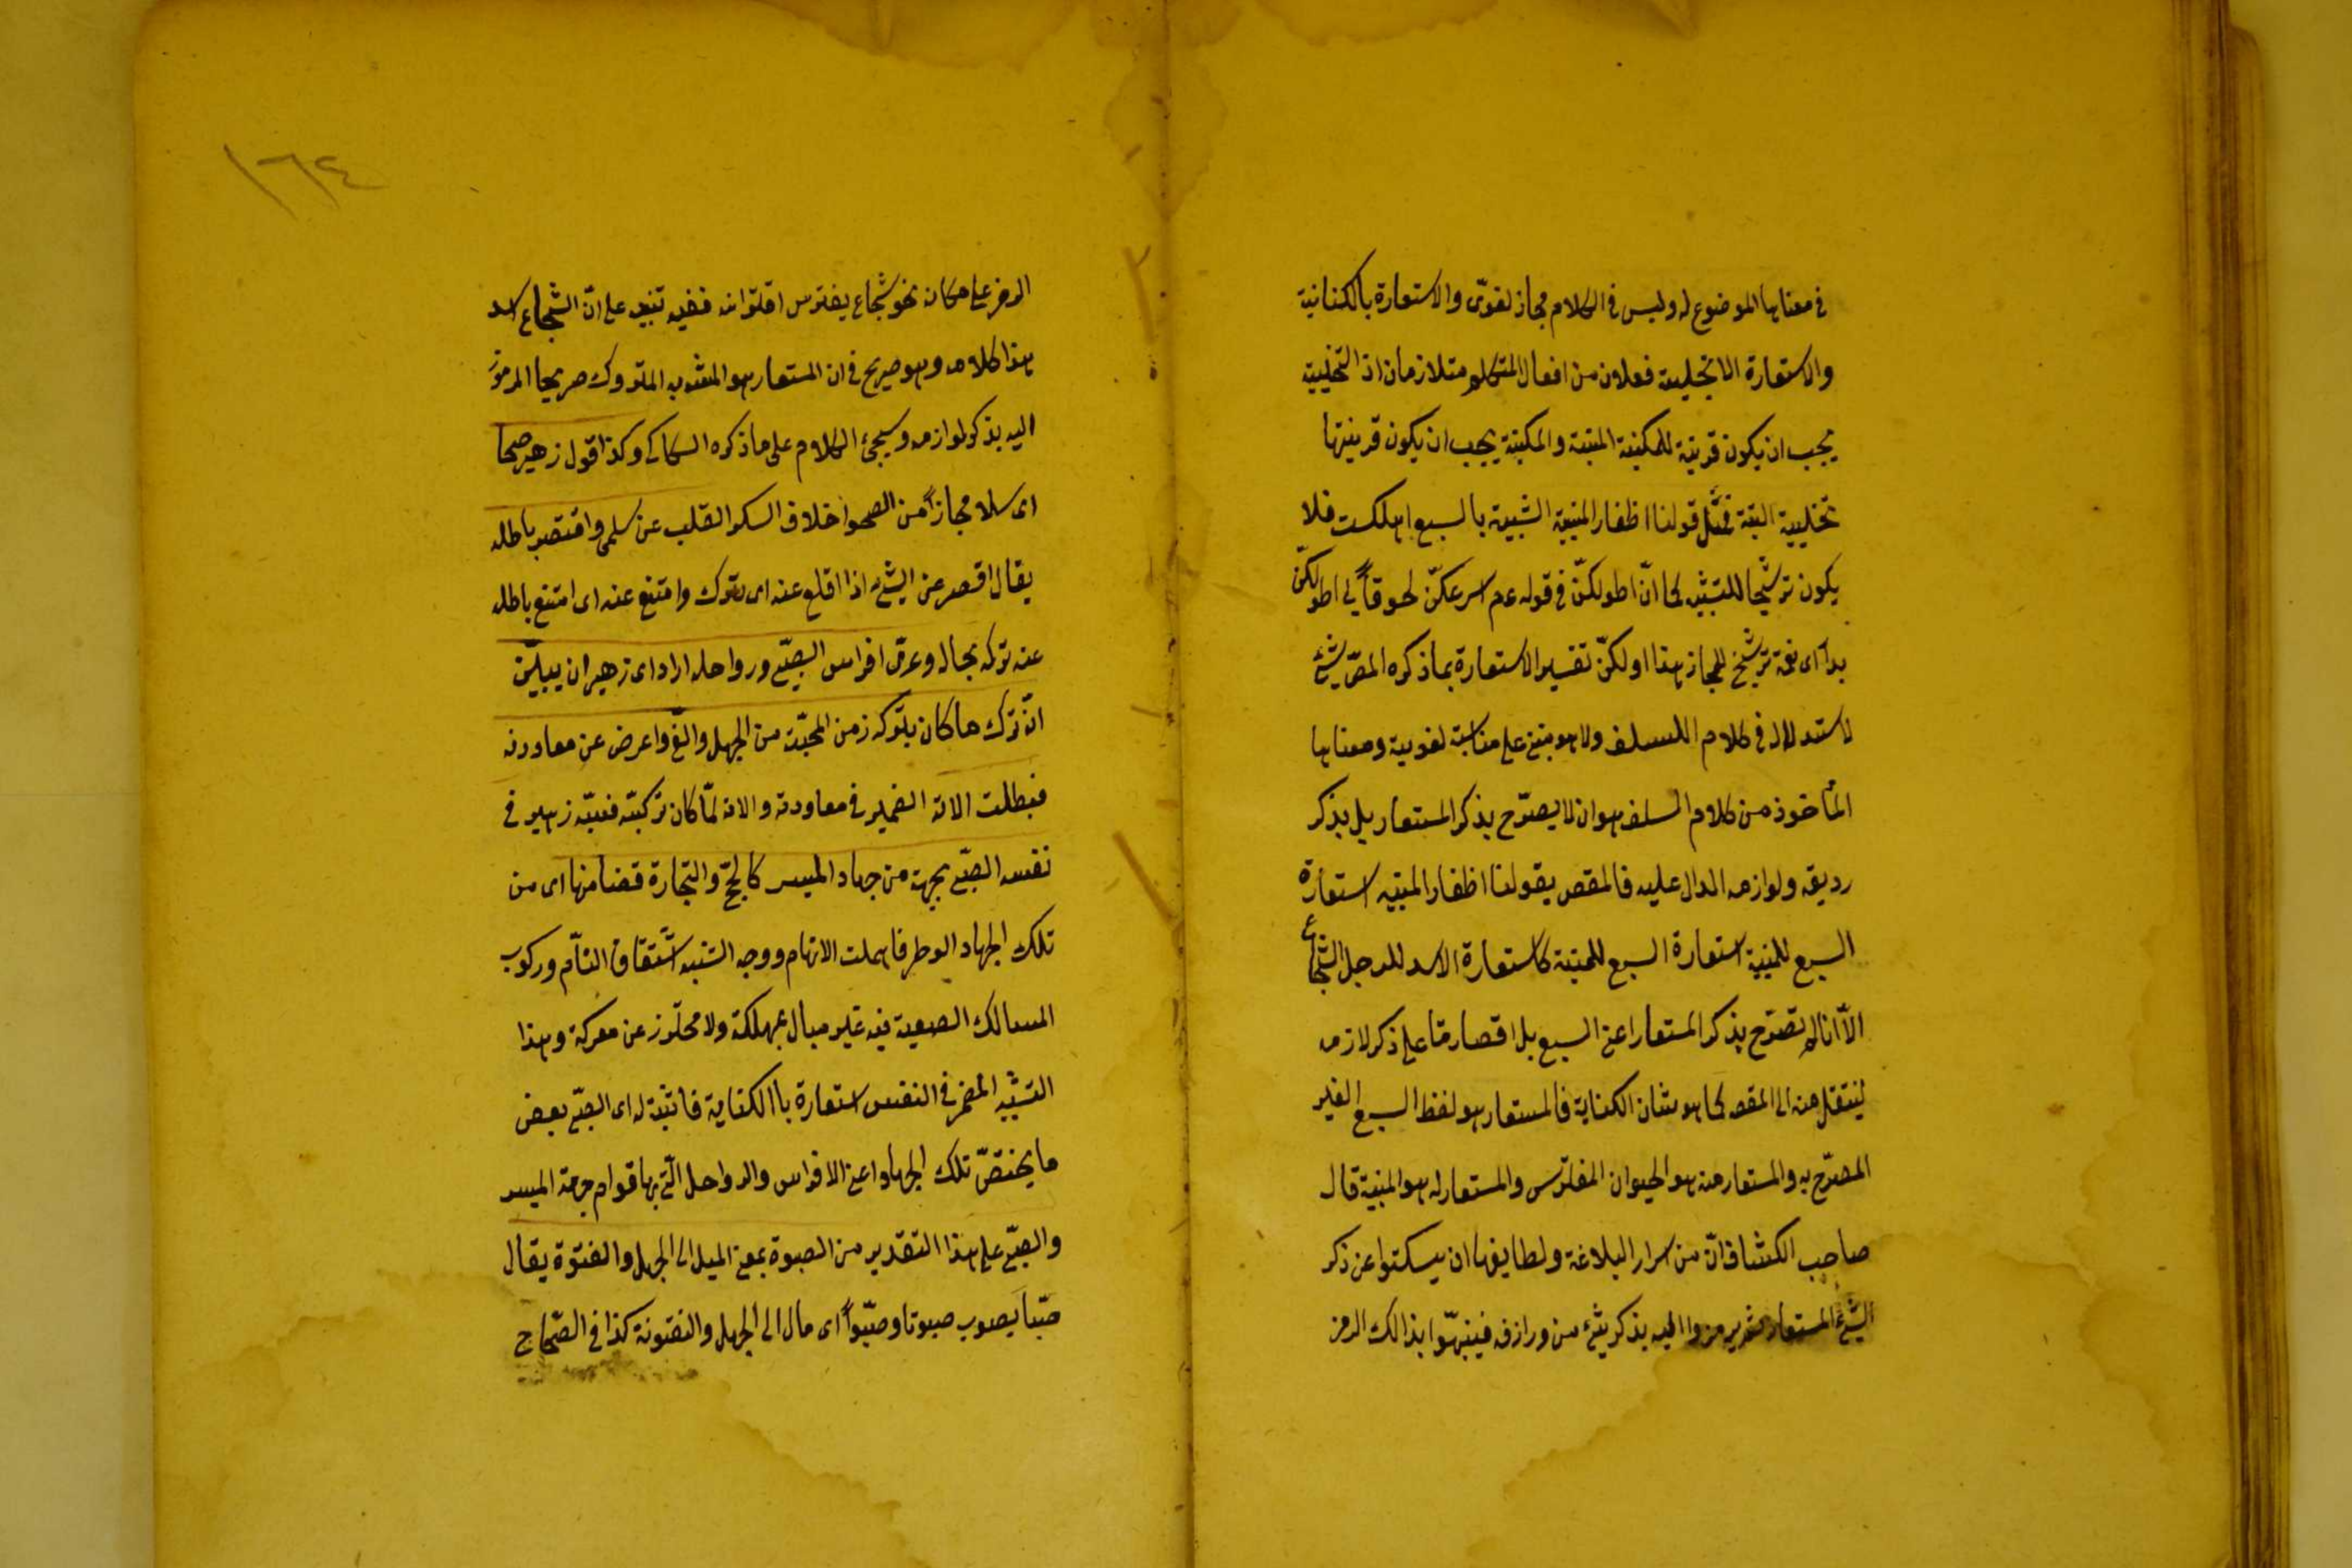 في معناها الموضوع له وليس في الكلام مجاز لغوىّ والاستعارة بالكنانية
والاستعارة الايخليية فعلان من افعال المتكلم متلازمان اذ التخليية
يجب ان يكون قرينة للمكينة المبتة والمكينة يجب ان يكون قرينتها
تخليية البتة فمثل قولنا اظفار المنية الشبيهة بالسبع اهلكت فلا
يكون ترشيحا للتشبيه كما انّ اطولكنّ في قوله عم اسرعكنّ لحوقاً لي اطولكنّ
يداً اى نعة ترشيخ للمجاز هذا اولكنّ تفسير الاستعارة بما ذكره المصّ بشئ
لاستدلال في كلام السلف ولا هو مبتنى على مناسبة لغوبية ومعناها
المأخوذ من كلام السلف هو ان لا يصرّح بذكر المستعار بل بذكر
رديقه ولوازمه الدال عليه فالمقص بقولنا اظفار المنية استعارة
السبع للمنية استعارة السبع للمنية كاستعارة الاسد للرجل الشجاع
الاّ انا لم نصرّح بذكر المستعار اعنى السبع بل اقصارمّا على ذكر لازمه
لينتقل منه الى المقص كما هو شان الكناية فالمستعار هو لفظ السبع الغير
المصرّح به والمستعار منه هو الحيوان المفترس والمستعار له هو المنية قال
صاحب الكشاف انّ من اسرار البلاغة ولطايفها ان يسكتوا عن ذكر
الشئ المستعار ثم يرمزوا اليه بذكر شئ من ورازفه فينبهّوا بذالك الرمز
١٦٤
الرمز على مكان نحو شجاع يفترس اقلتوانه ففيه تنبيه على انّ الشجاع اسد
هذا كلامه وهو صريح في ان المستعار هو المشبه به المتروك صريحا المرموز
اليه بذكر لوازمه وسيجئ الكلام على ما ذكره السكاكى وكذا قول زهير صحا
اى سلا مجازاً من الصحو اخلاف السكر القلب عن سلمى واقتصر باطله
يقال اقصر عن الشئ اذا اقلع عنه اى ترك وامتنع عنه اى امتنع باطله
عنه تركه بحاله وعرّى افراس الصبّى ورواحله اراد اى زهير ان يبيّن
انّه ترك ما كان يتركه زمن المحبّة من الجهل والغّى واعرض عن معاودته
فبطلت الاته الضمير في معاودته والاته لمّا كان تركبته فنبّه زهير في
نفسه الصبّى بجهة من جهاد المسير كالحجّ والتجارة قضا منها اى من
تلك الجهاد الوطر فاهملت الاتهام ووجه الشبه اشتقاق التأم وركوب
المسالك الصعبة فيه غير مبال بمهلكة ولا محترز عن معركة وهذا
التشبيه المضمر في النفس استعارة باالكناية فاثبت له اى الصبّى بعض
ما يختصّ تلك الجهاد اعنى الافراس والرواحل الّتى بها قوام جهة المسير
والصبّى على هذا التقدير من الصبوة بمعنى الميل الى الجهل والفتوة يقال
صّبا يصوب صبوتا وصبّواً اى مال الى الجهل والفتونة كذا في الصّحاح